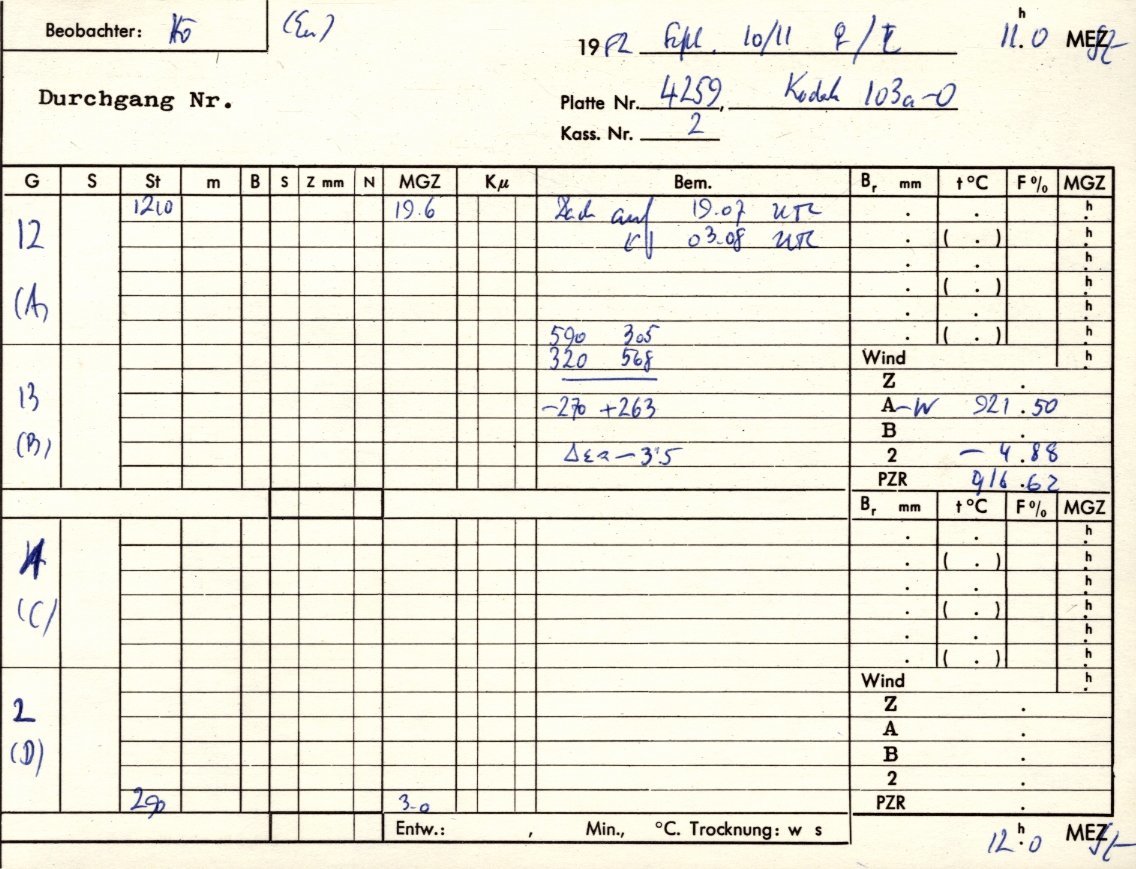 Beobachter: Kö (En)
1982 Sept. 10/11 11.0 h MEZ
Durchgang Nr.
Platte Nr. 4259, Kodak 103a-0
Kass. Nr. 2
G S St m B S Z mm N MGZ Kμ Bem. Br mm t °C F % MGZ
1210 19.6 Dach auf 19.07 UTC . . h
12 03.08 UTC . ( . ) h
. . h
(A) . ( . ) h
. . h
590 305 . ( . ) h
320 568 Wind h
Z .
13 -270 +263 A-W 921.50
(B) B .
Δεα - 3.5 2 - 4.88
PZR 916.62
Br mm t °C F % MGZ
. . h
. ( . ) h
. . h
(C) . ( . ) h
. . h
. ( . ) h
Wind h
2 Z .
A .
(D) B .
2 .
290 3.0 PZR .
Entw.: , Min., °C. Trocknung: w s
12.0 h MEZ